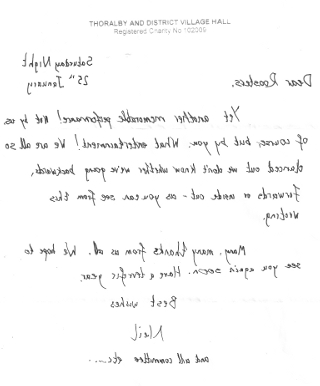 THORALBY AND DISTRICT VILLAGE HALL
Registered Charity No 102089
Saturday Night
25th January
Dear Roosters,
Yet another memorable performance! Not by us
of course, but by you. What entertainment! We are all so
danced out we don't know whether we're going backwards,
forwards or inside out - as you can see from this
writing.
Many, many thanks from us all. We hope to
see you again soon. Have a terrific year.
Best wishes
Neil
and all committee etc....